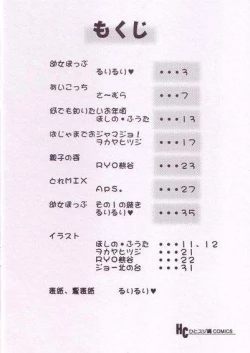 もくじ
幼女ほっぷ
るいるい♥ ・・・3
あいこっち
さ〜ぎら ・・・7
何でも知りたいお年頃
ほしの・ふうた ・・・13
はじゃまでおジャマジョ!
ヲカヤヒツジ ・・・17
親子の宿
RYO熊谷 ・・・23
どれMIX
APS。 ・・・27
幼女ほっぷ その1の続き
るいるい♥ ・・・35
イラスト
ほしの・ふうた ・・・11、12
ヲカヤヒツジ ・・・21
RYO熊谷 ・・・22
ジョー北の台 ・・・31
表紙、裏表紙 るいるい♥
HC ひとスジ編 COMICS